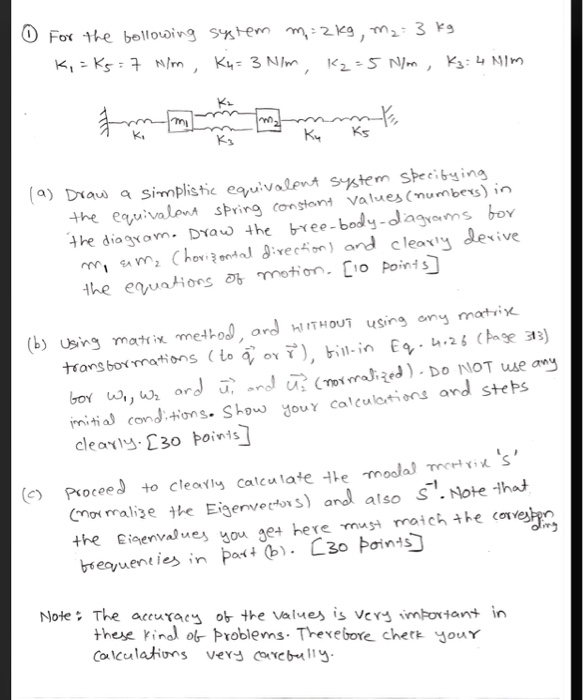 ① For the following system m₁=2kg, m₂=3 kg
K₁=K₅=7 N/m, K₄=3 N/m, K₂=5 N/m, K₃=4 N/m
K₂
m₁ m₂
K₁ K₃ K₄ K₅
(a) Draw a simplistic equivalent system specifying
the equivalent spring constant values (numbers) in
the diagram. Draw the free-body-diagrams for
m₁ & m₂ (horizontal direction) and clearly derive
the equations of motion. [10 points]
(b) Using matrix method, and WITHOUT using any matrix
transformations (to q⃗ or r⃗), fill-in Eq. 4.26 (Page 313)
for ω₁, ω₂ and u⃗₁ and u⃗₂ (normalized). DO NOT use any
initial conditions. Show your calculations and steps
clearly. [30 points]
(c) Proceed to clearly calculate the modal matrix 's'
(normalize the Eigenvectors) and also S⁻¹. Note that
the Eigenvalues you get here must match the corresponding
frequencies in part (b). [30 points]
Note: The accuracy of the values is very important in
these kind of problems. Therefore check your
calculations very carefully.